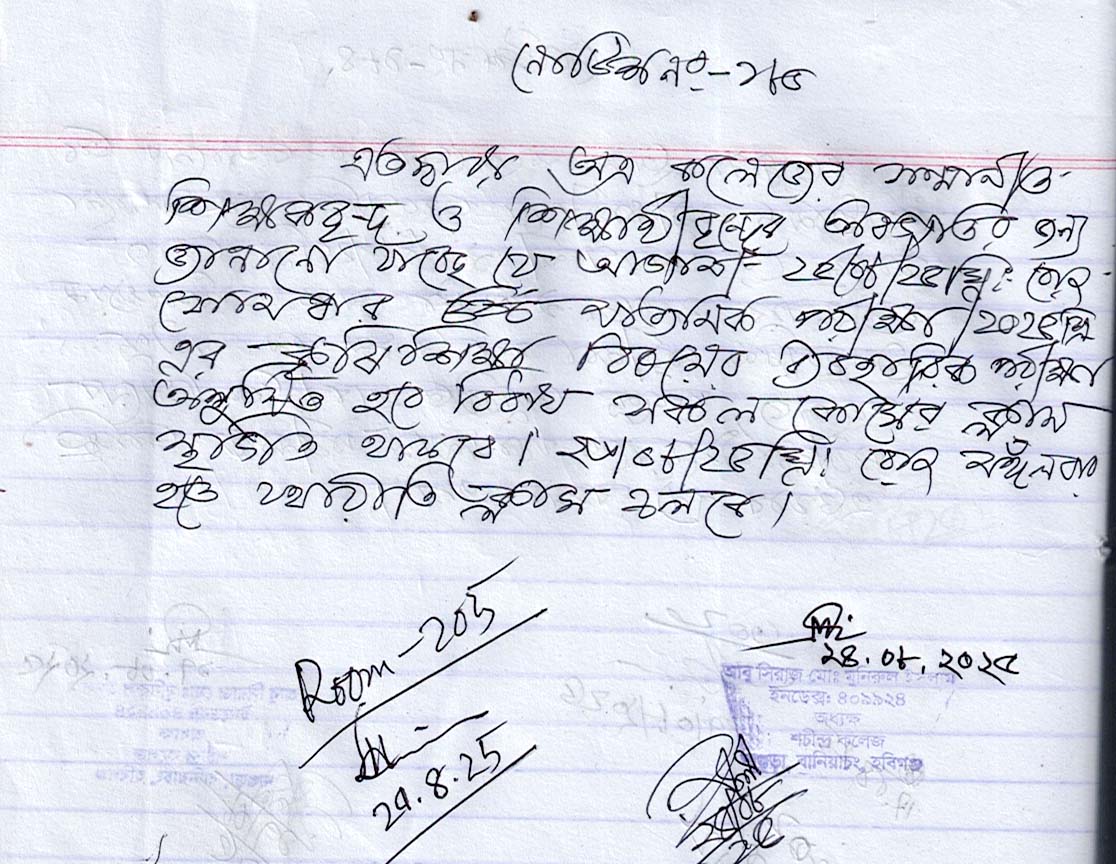 নোটিশ নং-২৮৩
এতদ্বারা অত্র কলেজের সম্মানীত
শিক্ষকবৃন্দ ও শিক্ষার্থীবৃন্দের অবগতির জন্য
জানানো যাচ্ছে যে আগামী- ২৫/০৮/২৫খ্রি: রোজ
সোমবার পরীক্ষা/২০২৫খ্রি
এর কৃষিশিক্ষা বিষয়ের ব্যবহারিক পরীক্ষা
অনুষ্ঠিত হবে বিধায় সকল কোর্সের ক্লাস
স্থগিত থাকবে। ২৬/০৮/২৫খ্রি: রোজ মঙ্গলবার
হতে যথারীতি ক্লাস চলবে।
Room-205
24.8.25
২৪.০৮.২০২৫
আবু সিরাজ মোঃ মুনিরুল ইসলাম
ইনডেক্স: ৪০৯৯২৪
অধ্যক্ষ
শচীন্দ্র কলেজ
বানিয়াচং, হবিগঞ্জ